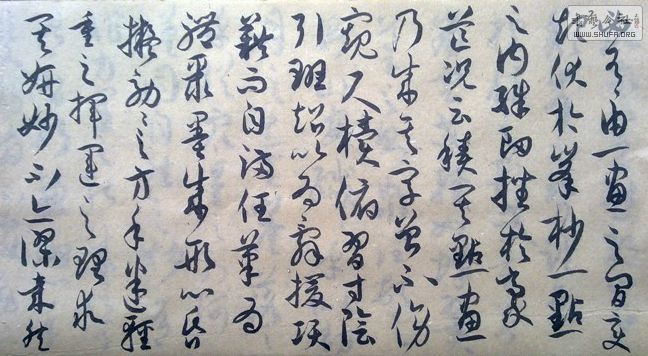 有由一畫之間變
起伏於峯杪一點
之内殊衄挫於豪
芒況云積其點畫
乃成其字曾不傍
窺尺牘俯習寸陰
引班超以為辭援項
籍而自滿任筆為
體聚墨成形心昏
擬効之方手迷
之揮運之理求
其妍妙不亦謬哉然
書藝公社
WWW.SHUFA.ORG